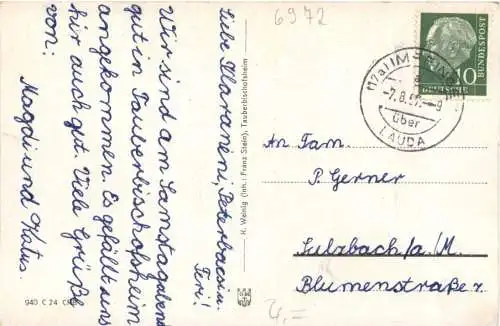 6972
Liebe Klaraneni, Peterbacsi u.
Teri!
Wir sind am Samstagabend
gut in Tauberbischofsheim
angekommen. Es gefällt uns
hier auch gut. Viele Grüße
von:
Magdi und Katus.
940 C 24 CHB
H. Weinig (Inh.: Franz Stein), Tauberbischofsheim
-7.8.57.-9
über
LAUDA
10
DEUTSCHE
BUNDESPOST
An Fam.
P. Gerner
Sulzbach/a./M.
Blumenstraße 7.
4,=